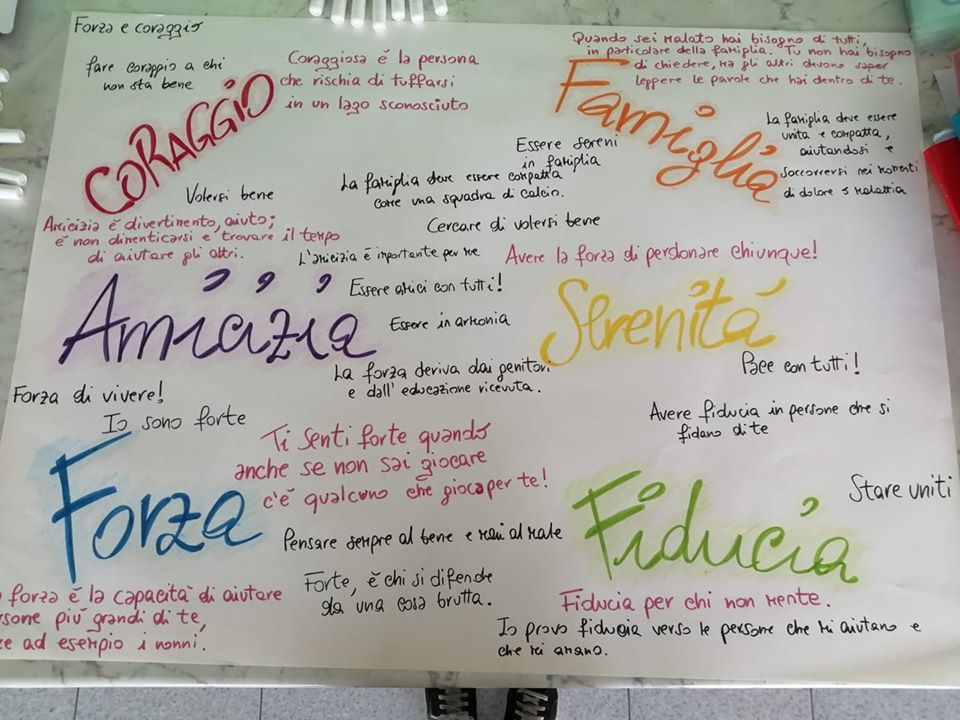 Forza e coraggio
fare coraggio a chi
non sta bene
CORAGGIO
Coraggiosa è la persona
che rischia di tuffarsi
in un lago sconosciuto
Quando sei malato hai bisogno di tutti,
in particolare della famiglia. Tu non hai bisogno
di chiedere, ma gli altri devono saper
leggere le parole che hai dentro di te.
Famiglia
La famiglia deve essere
unita e compatta,
aiutandosi e
soccorrersi nei momenti
di dolore e malattia
Essere sereni
in famiglia
La famiglia deve essere compatta
come una squadra di calcio.
Volersi bene
Cercare di volersi bene
Amicizia è divertimento, aiuto;
è non dimenticarsi e trovare il tempo
di aiutare gli altri.
L'amicizia è importante per me
Avere la forza di perdonare chiunque!
Amicizia
Essere amici con tutti!
Essere in armonia
Serenità
Pace con tutti!
La forza deriva dai genitori
e dall'educazione ricevuta.
Forza di vivere!
Io sono forte
Avere fiducia in persone che si
fidano di te
Forza
Ti senti forte quando
anche se non sai giocare
c'è qualcuno che gioca per te!
Stare uniti
Fiducia
Pensare sempre al bene e mai al male
Forte, è chi si difende
da una cosa brutta.
forza è la capacità di aiutare
più grandi di te,
ad esempio i nonni.
Fiducia per chi non mente.
Io provo fiducia verso le persone che mi aiutano e
che mi amano.